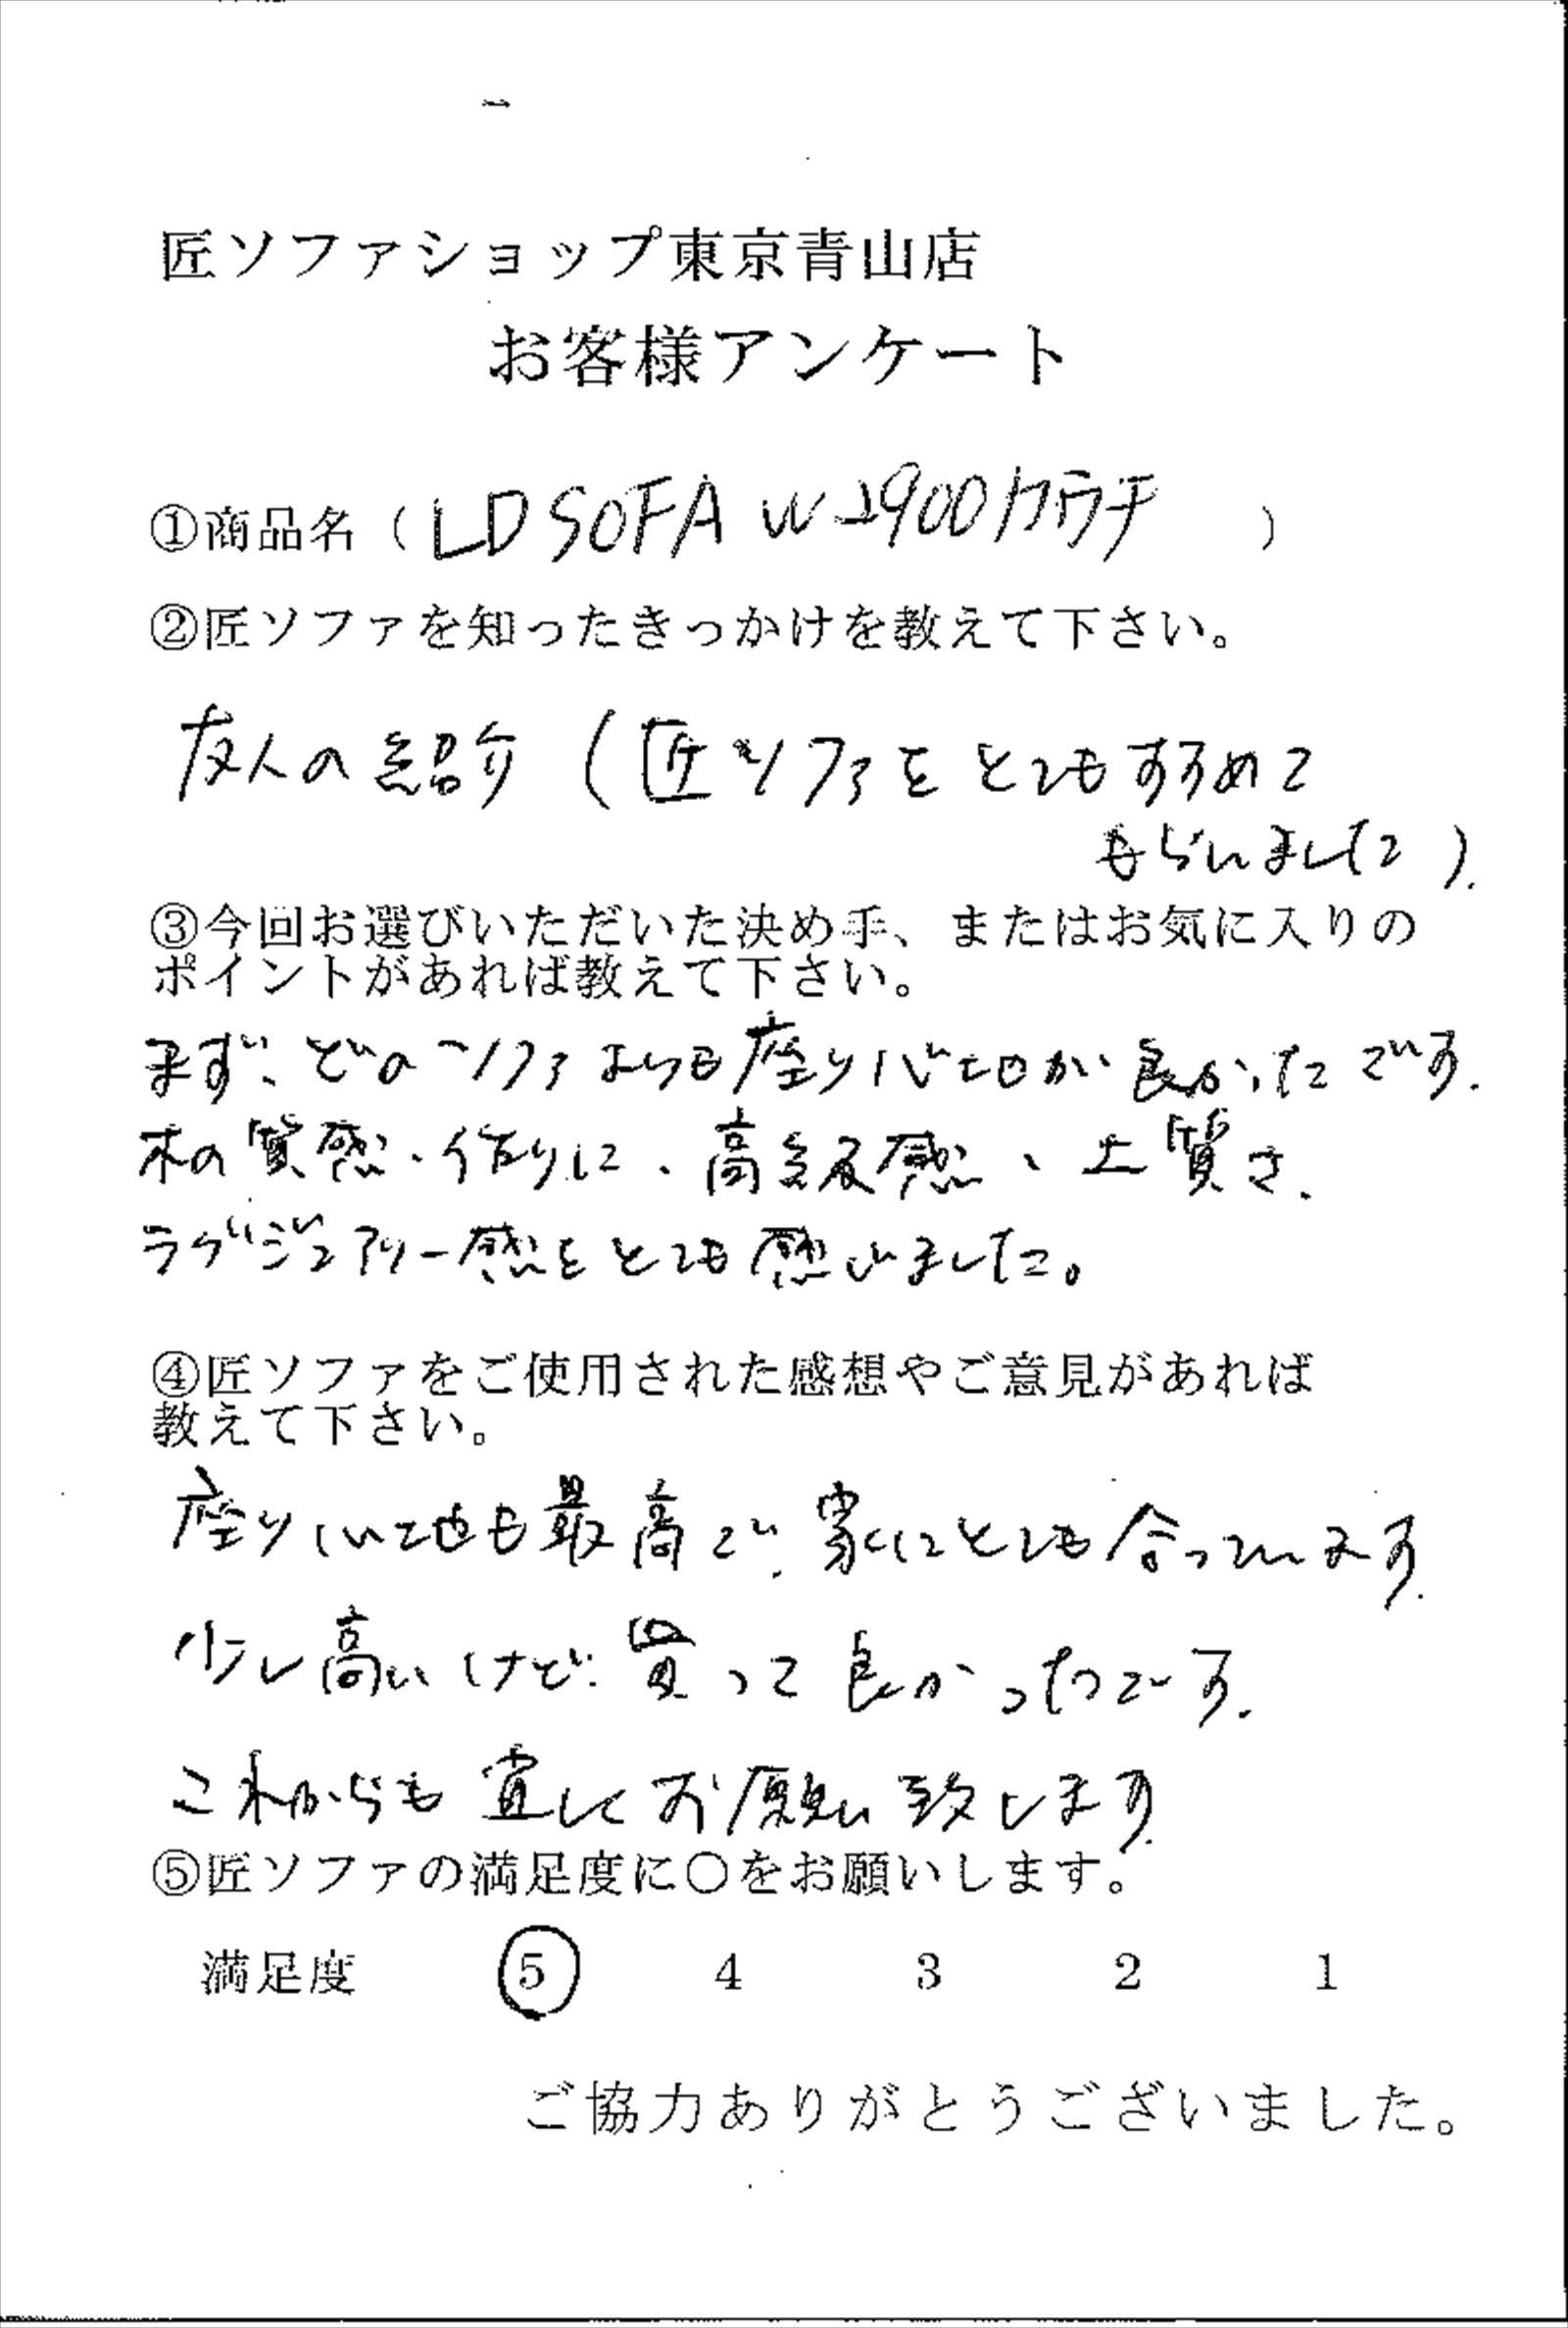 匠ソファショップ東京青山店
お客様アンケート
①商品名（LD SOFA W2900カウチ）
②匠ソファを知ったきっかけを教えて下さい。
友人の紹介（匠ソファをとてもすすめて
もらいました）.
③今回お選びいただいた決め手、またはお気に入りの
ポイントがあれば教えて下さい。
まず、どのソファよりも座り心地が良かったです.
木の質感・作りに、高級感、上質さ、
ラグジュアリー感をとても感じました。
④匠ソファをご使用された感想やご意見があれば
教えて下さい。
座り心地も最高で、家にとても合っています.
少し高いけど、買って良かったです.
これからも宜しくお願い致します.
⑤匠ソファの満足度に〇をお願いします。
満足度 5 4 3 2 1
ご協力ありがとうございました。